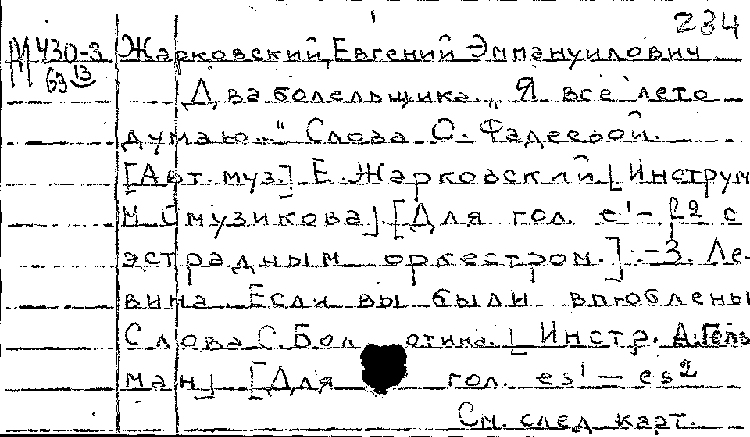 234
М430-3 Жарковский, Евгений Эммануилович
69 13
Два болельщика. „Я всё лето
думаю..." Слова О. Фадеевой.
[Авт. муз.] Е. Жарковский. [Инструм
М. Смузикова] [Для гол. e¹ – f2 с
эстрадным оркестром.] – 3. Ле-
вина. Если вы были влюблены
Слова С. Болотина. [Инстр. А. Гель
ман] [Для гол. es¹ – es2
См. след карт.